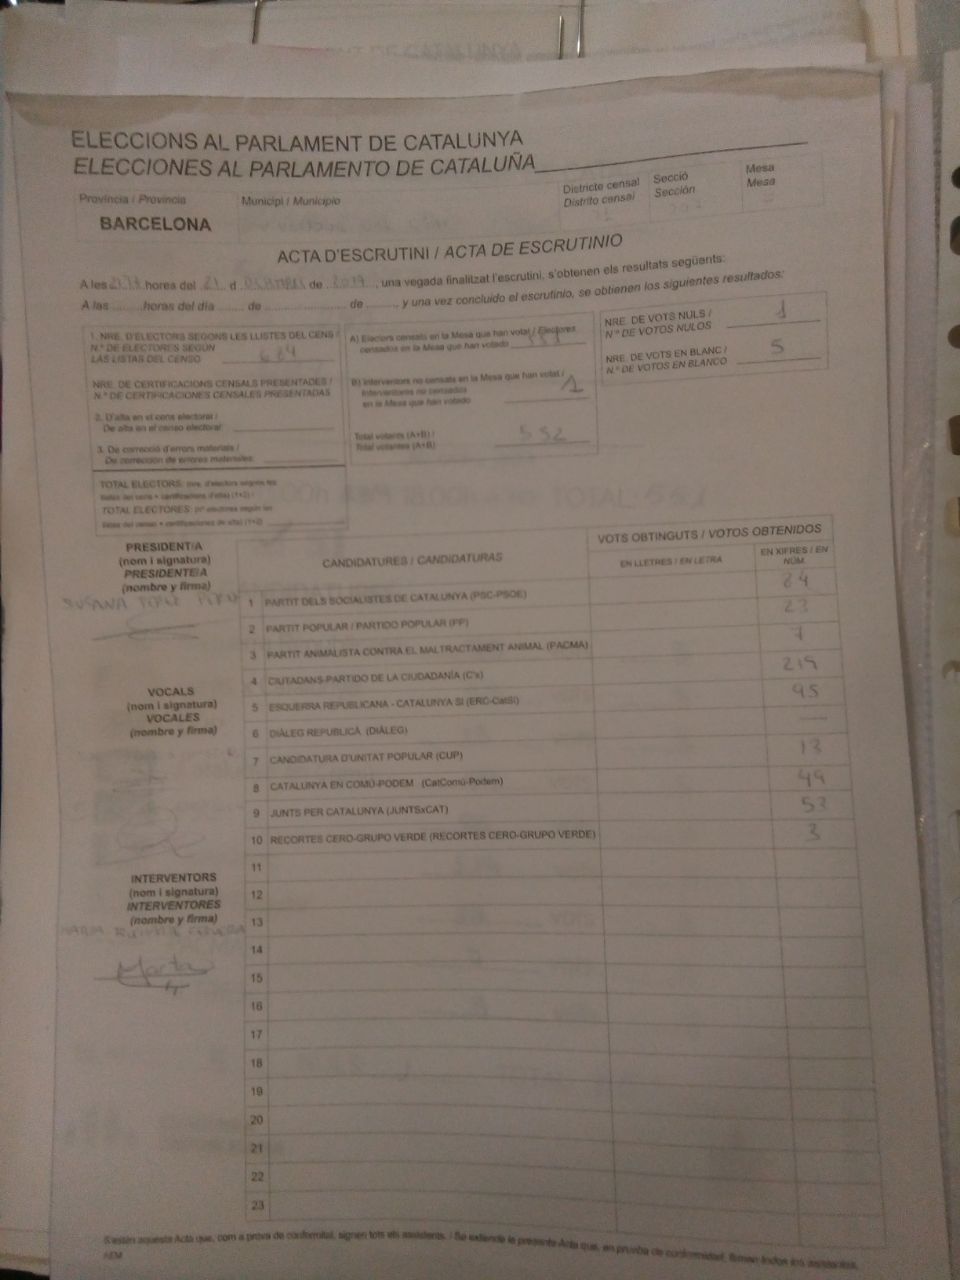 ELECCIONS AL PARLAMENT DE CATALUNYA
ELECCIONES AL PARLAMENTO DE CATALUÑA
Província / Provincia
BARCELONA
Municipi / Municipio
Districte censal
Distrito censal
Secció
Sección
Mesa
Mesa
ACTA D'ESCRUTINI / ACTA DE ESCRUTINIO
A les horas del 21 d de 2017, una vegada finalitzat l'escrutini, s'obtenen els resultats següents:
A las horas del día de de , y una vez concluido el escrutinio, se obtienen los siguientes resultados:
1. NRE. D'ELECTORS SEGONS LES LLISTES DEL CENS /
N.º DE ELECTORES SEGÚN
LAS LISTAS DEL CENSO 684
NRE. DE CERTIFICACIONS CENSALS PRESENTADES /
N.º DE CERTIFICACIONES CENSALES PRESENTADAS
2. D'alta en el cens electoral /
De alta en el censo electoral
3. De correcció d'errors materials /
De corrección de errores materiales
TOTAL ELECTORS: (nre. d'electors segons les
llistes del cens + certificacions d'alta) (1+2) /
TOTAL ELECTORES: (nº electores según las
listas del censo + certificaciones de alta) (1+2)
A) Electors censats en la Mesa que han votat / Electores
censados en la Mesa que han votado 551
B) Interventors no censats en la Mesa que han votat /
Interventores no censados
en la Mesa que han votado 1
Total votants (A+B) /
Total votantes (A+B) 552
NRE. DE VOTS NULS /
N.º DE VOTOS NULOS 1
NRE. DE VOTS EN BLANC /
N.º DE VOTOS EN BLANCO 5
PRESIDENT/A
(nom i signatura)
PRESIDENTE/A
(nombre y firma)
SUSANA
VOCALS
(nom i signatura)
VOCALES
(nombre y firma)
INTERVENTORS
(nom i signatura)
INTERVENTORES
(nombre y firma)
MARTA
Marta
CANDIDATURES / CANDIDATURAS
VOTS OBTINGUTS / VOTOS OBTENIDOS
EN LLETRES / EN LETRA
EN XIFRES / EN NÚM.
1 PARTIT DELS SOCIALISTES DE CATALUNYA (PSC-PSOE) 84
2 PARTIT POPULAR / PARTIDO POPULAR (PP) 23
3 PARTIT ANIMALISTA CONTRA EL MALTRACTAMENT ANIMAL (PACMA) 7
4 CIUTADANS-PARTIDO DE LA CIUDADANÍA (C's) 219
5 ESQUERRA REPUBLICANA - CATALUNYA SÍ (ERC-CatSí) 95
6 DIÀLEG REPUBLICÀ (DIÀLEG) —
7 CANDIDATURA D'UNITAT POPULAR (CUP) 13
8 CATALUNYA EN COMÚ-PODEM (CatComú-Podem) 49
9 JUNTS PER CATALUNYA (JUNTSxCAT) 53
10 RECORTES CERO-GRUPO VERDE (RECORTES CERO-GRUPO VERDE) 3
11
12
13
14
15
16
17
18
19
20
21
22
23
S'estén aquesta Acta que, com a prova de conformitat, signen tots els assistents. / Se extiende la presente Acta que, en prueba de conformidad, firman todos los asistentes.